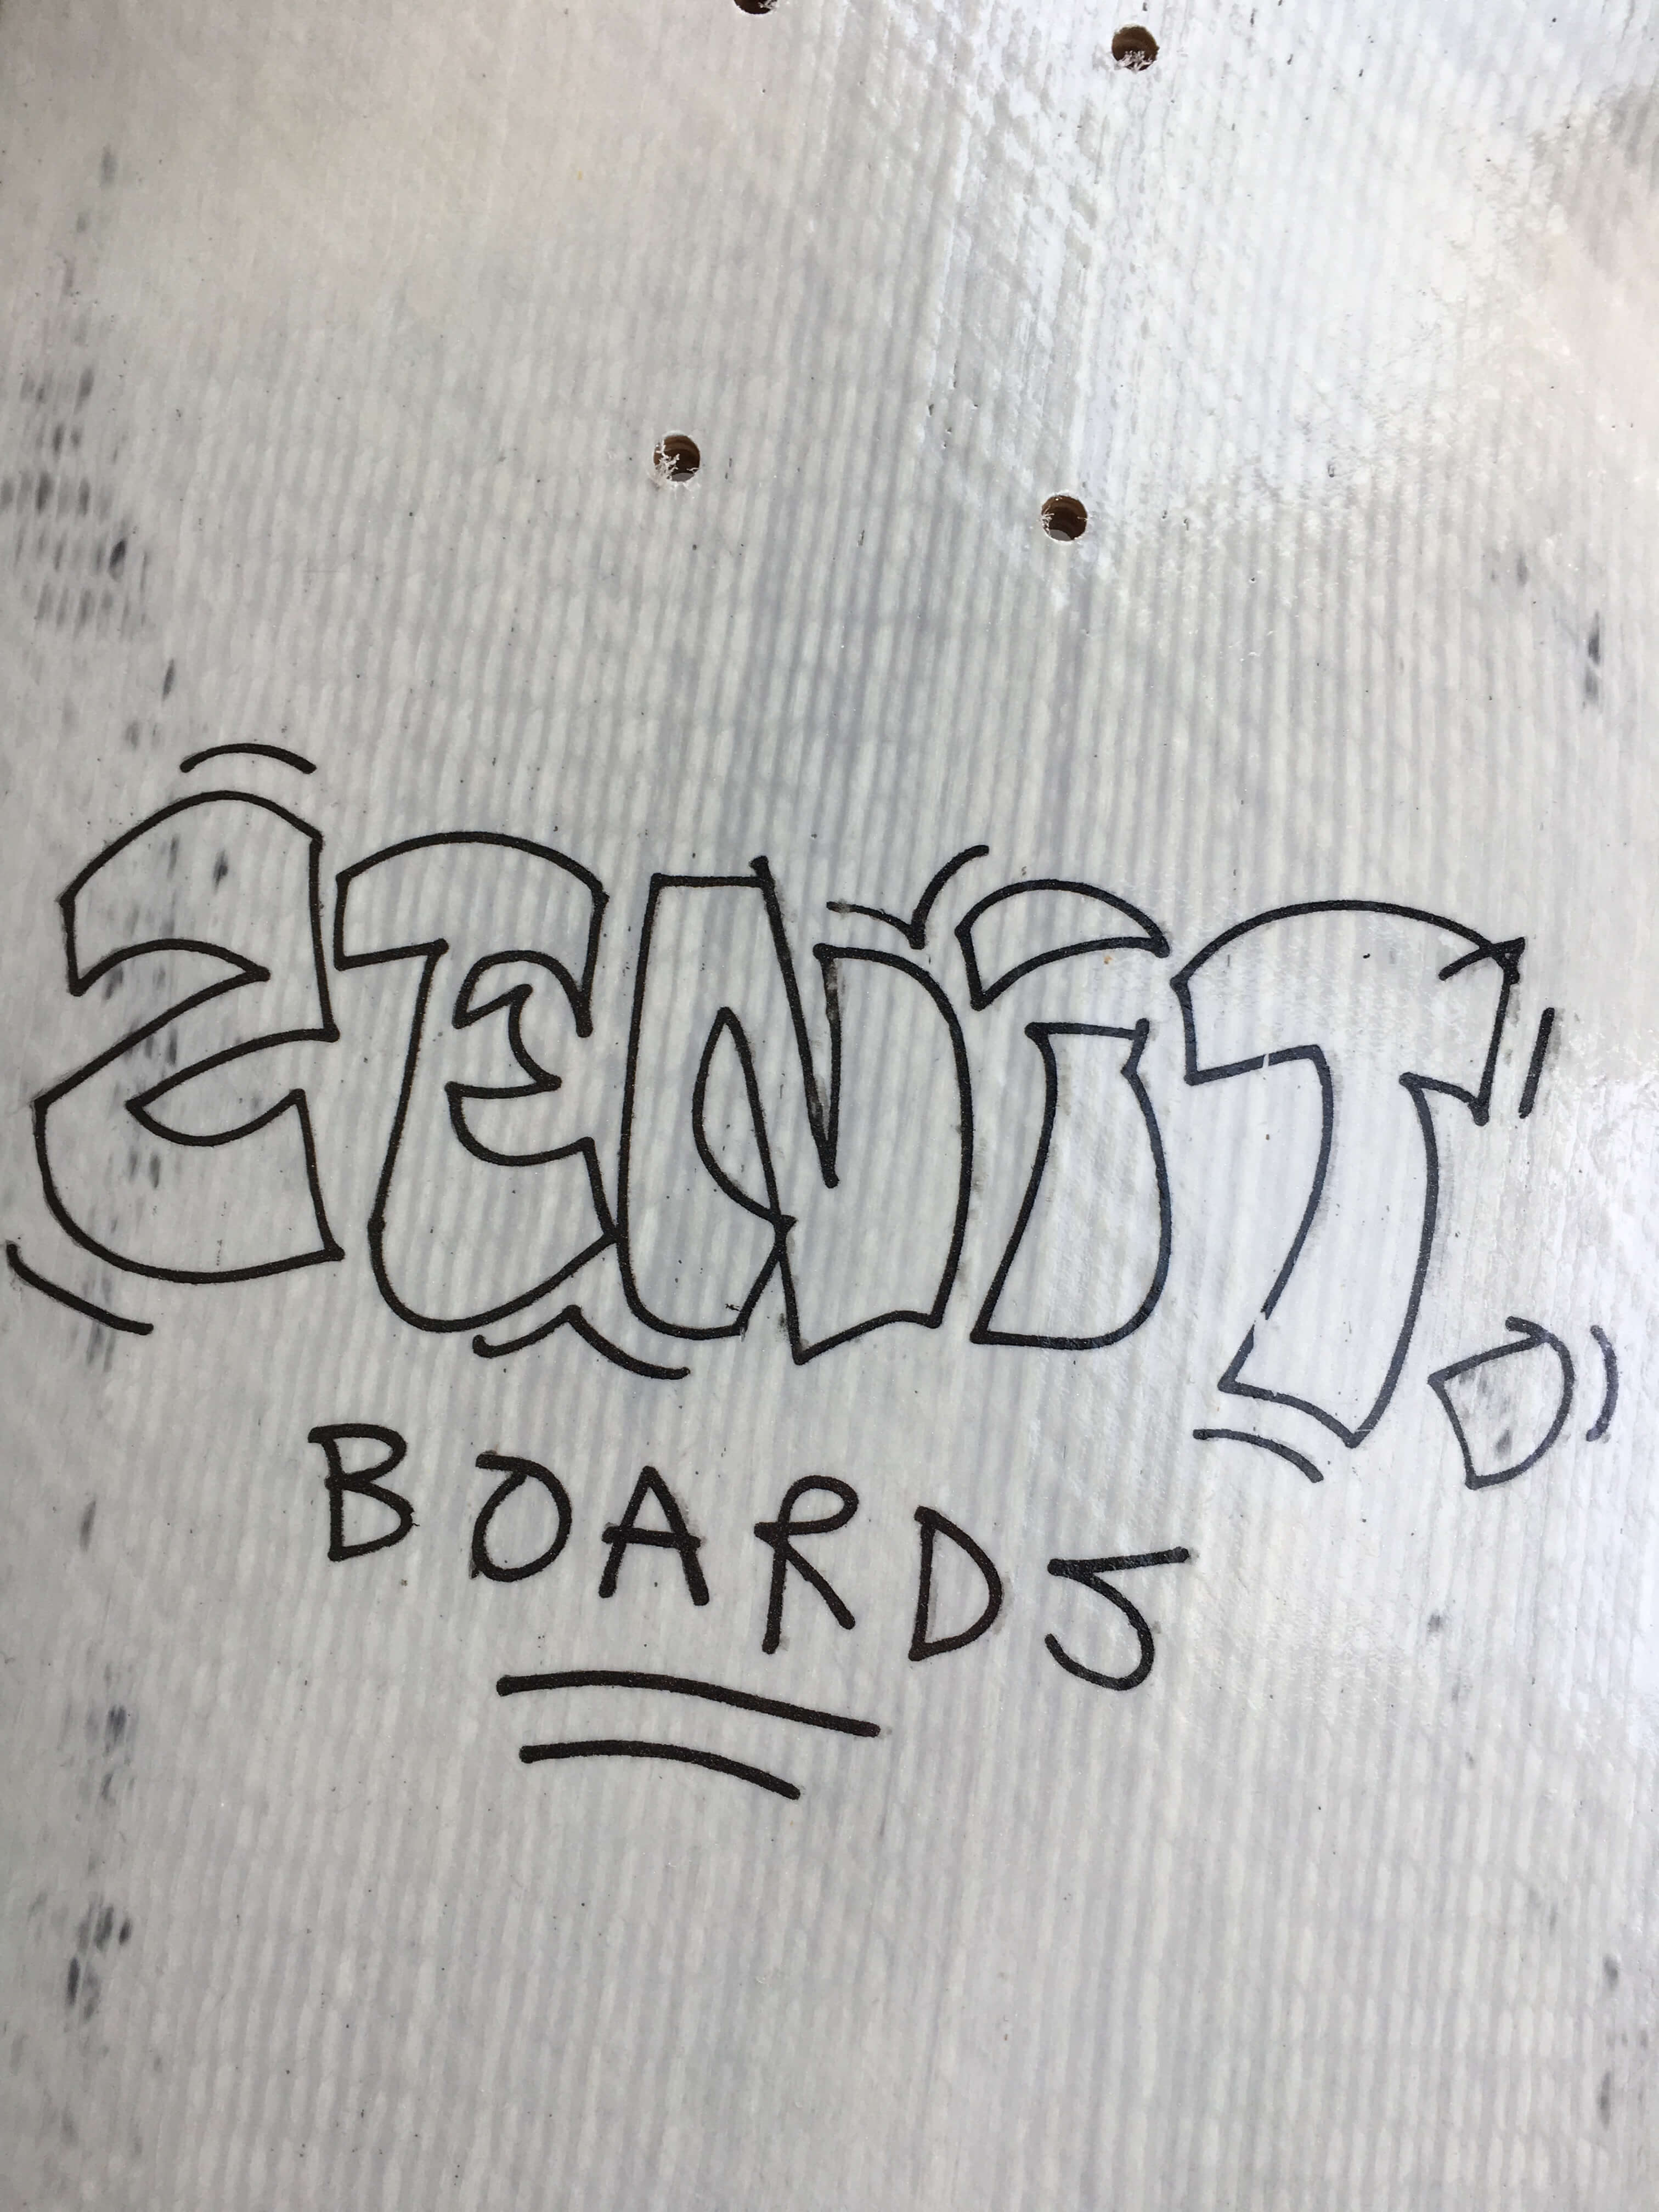 ZENIT.
BOARDS